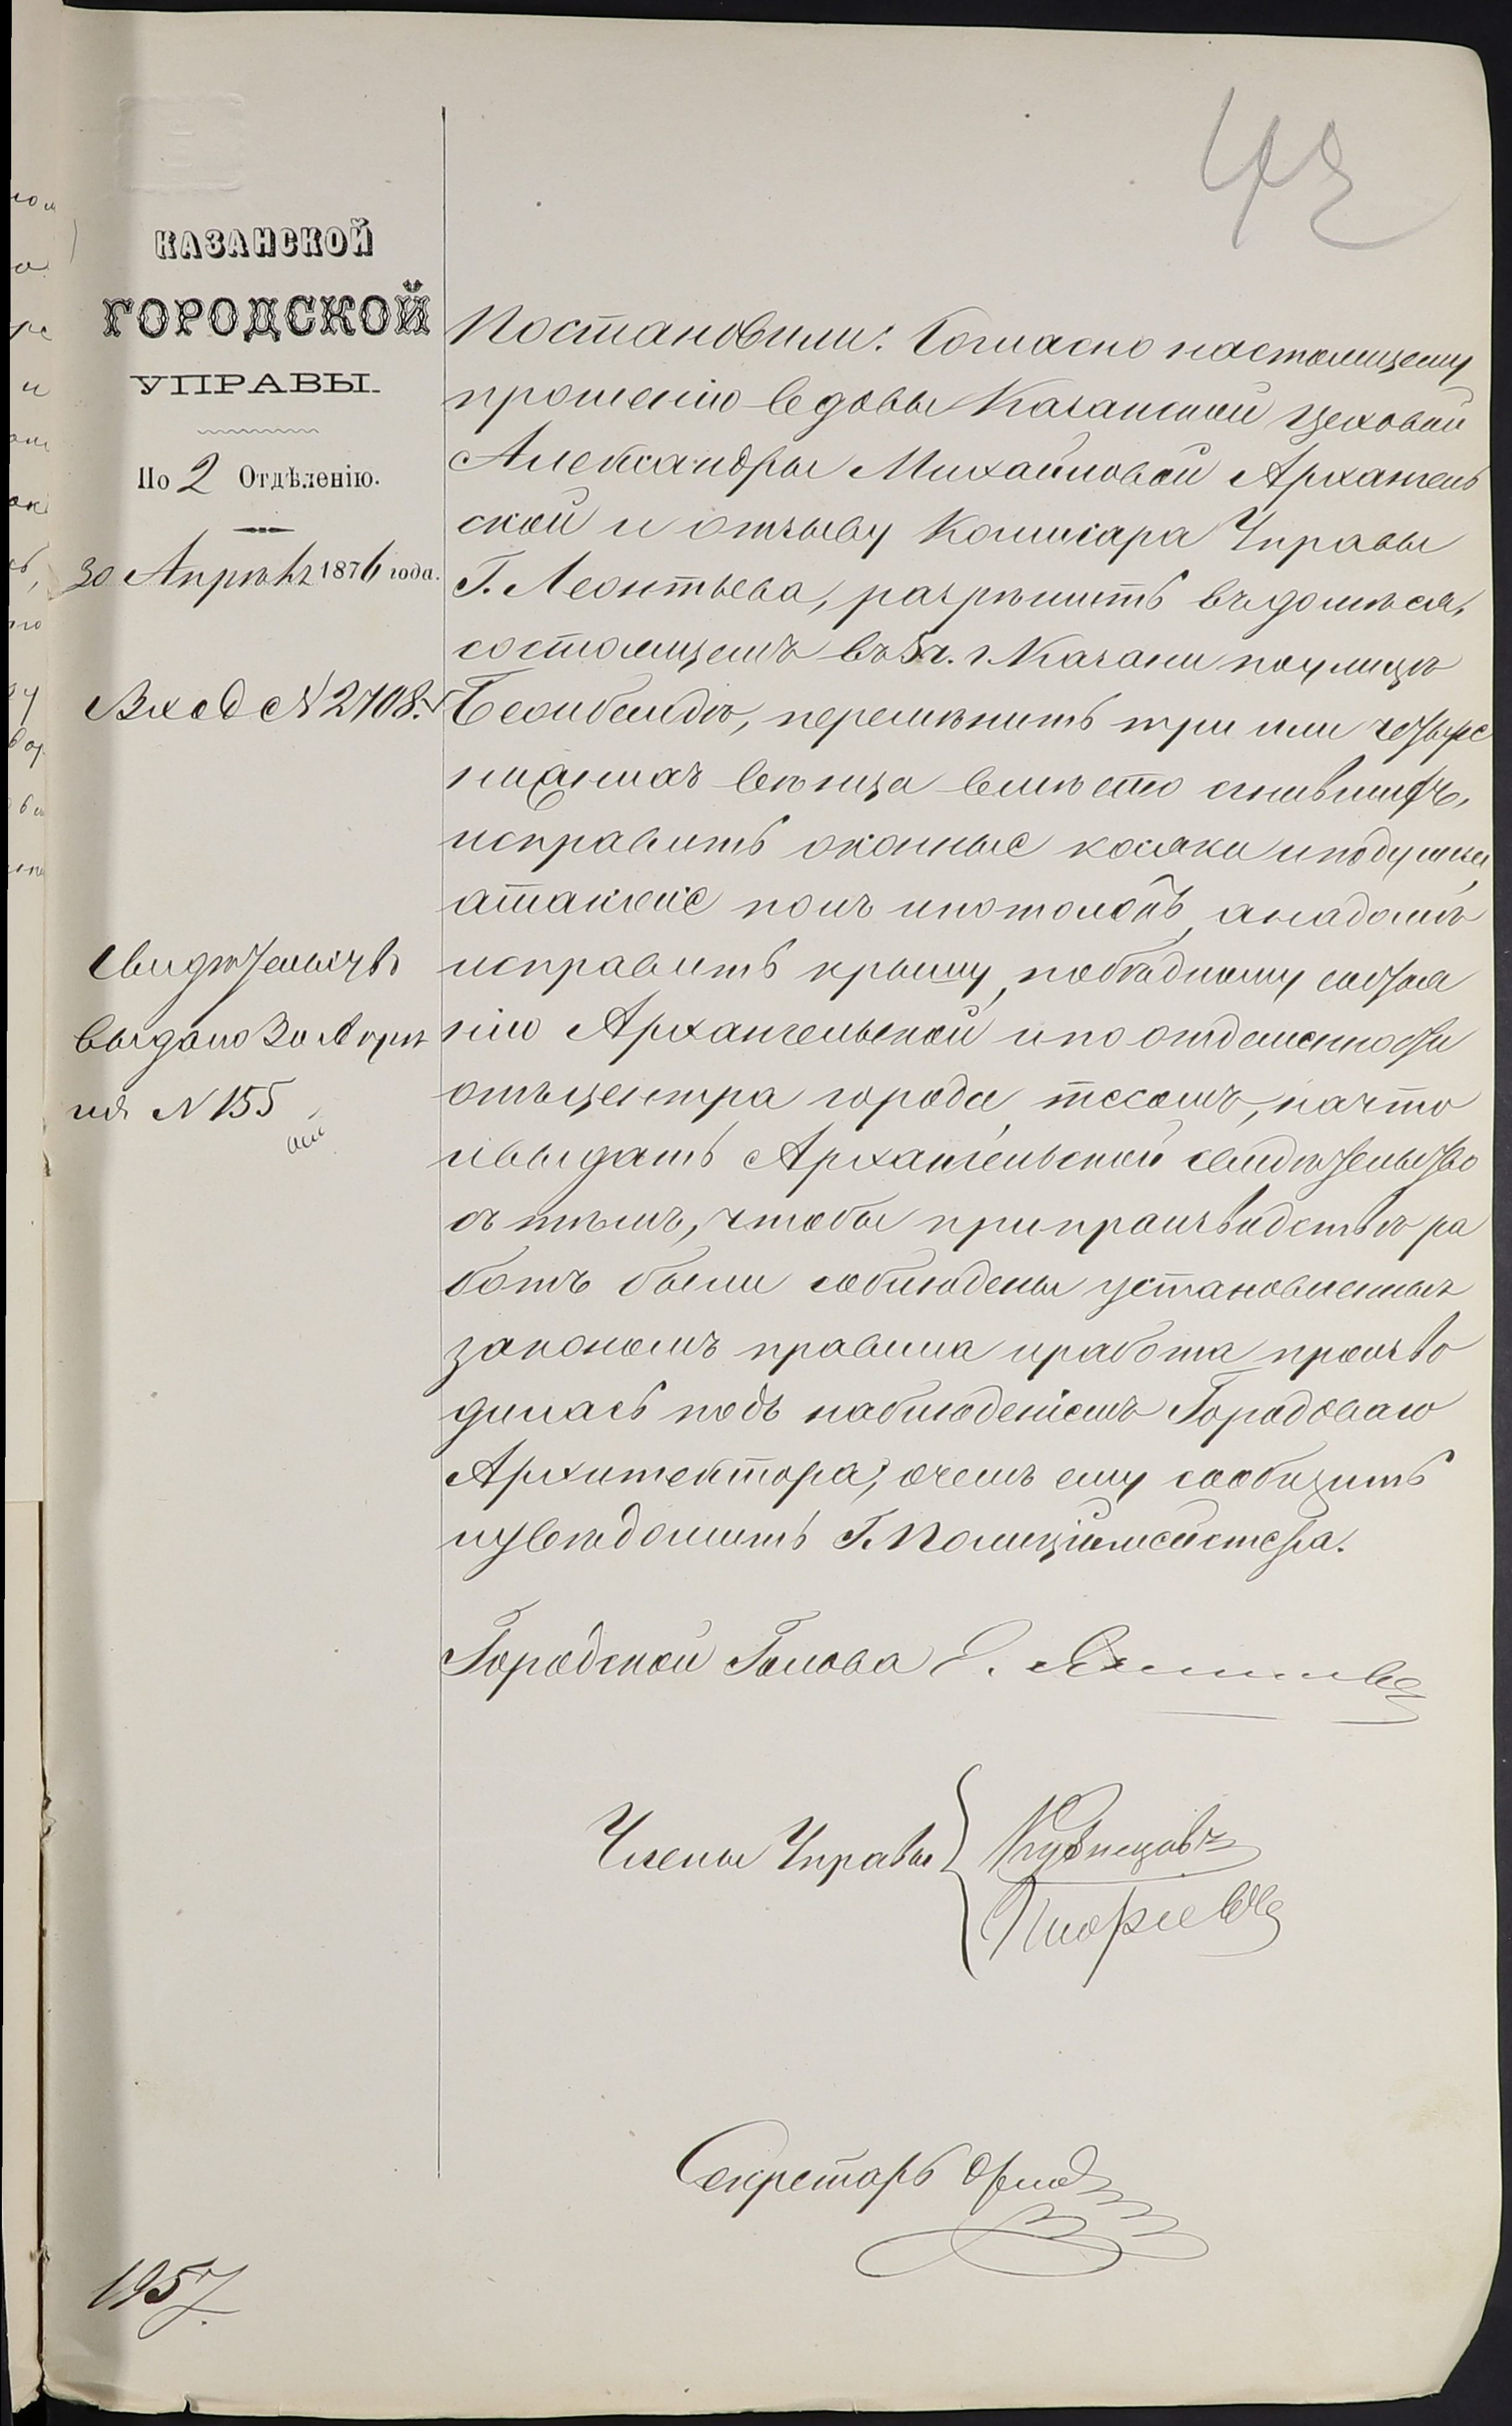 42
КАЗАНСКОЙ
ГОРОДСКОЙ
УПРАВЫ.
По 2 Отдѣленію.
30 Апрѣля 1876 года.
Вход №2708.
Свидѣтельство
выдано 30 Апрѣ
ля №155
Постановили: Согласно настоящему
прошенію вдовы Казанской цеховой
Александры Михайловой Архангель
ской и отзыву Комисара Управы
Г. Леонтьева, разрѣшить въ домѣ ея,
состоящемъ въ 5 ч. г. Казани по улицѣ
перемѣнить три или четыре
нижнихъ вѣнца вмѣсто сгнившихъ,
исправить оконные косяки и подушки,
а также полъ и потолокъ, а на домѣ
исправить крышу, по бѣдному состоя
нію Архангельской и по отдаленности
отъ центра города, тесомъ, на что
и выдать Архангельской свидѣтельство
съ тѣмъ, чтобы при производствѣ ра
ботъ были соблюдены установленныя
закономъ правила и работа произво
дилась подъ наблюденіемъ Городоваго
Архитектора, о чемъ ему сообщить
и увѣдомить Г. Полиціимейстера.
Городской Голова Е.
Члены Управы
Кузнецовъ
Секретарь
1957.